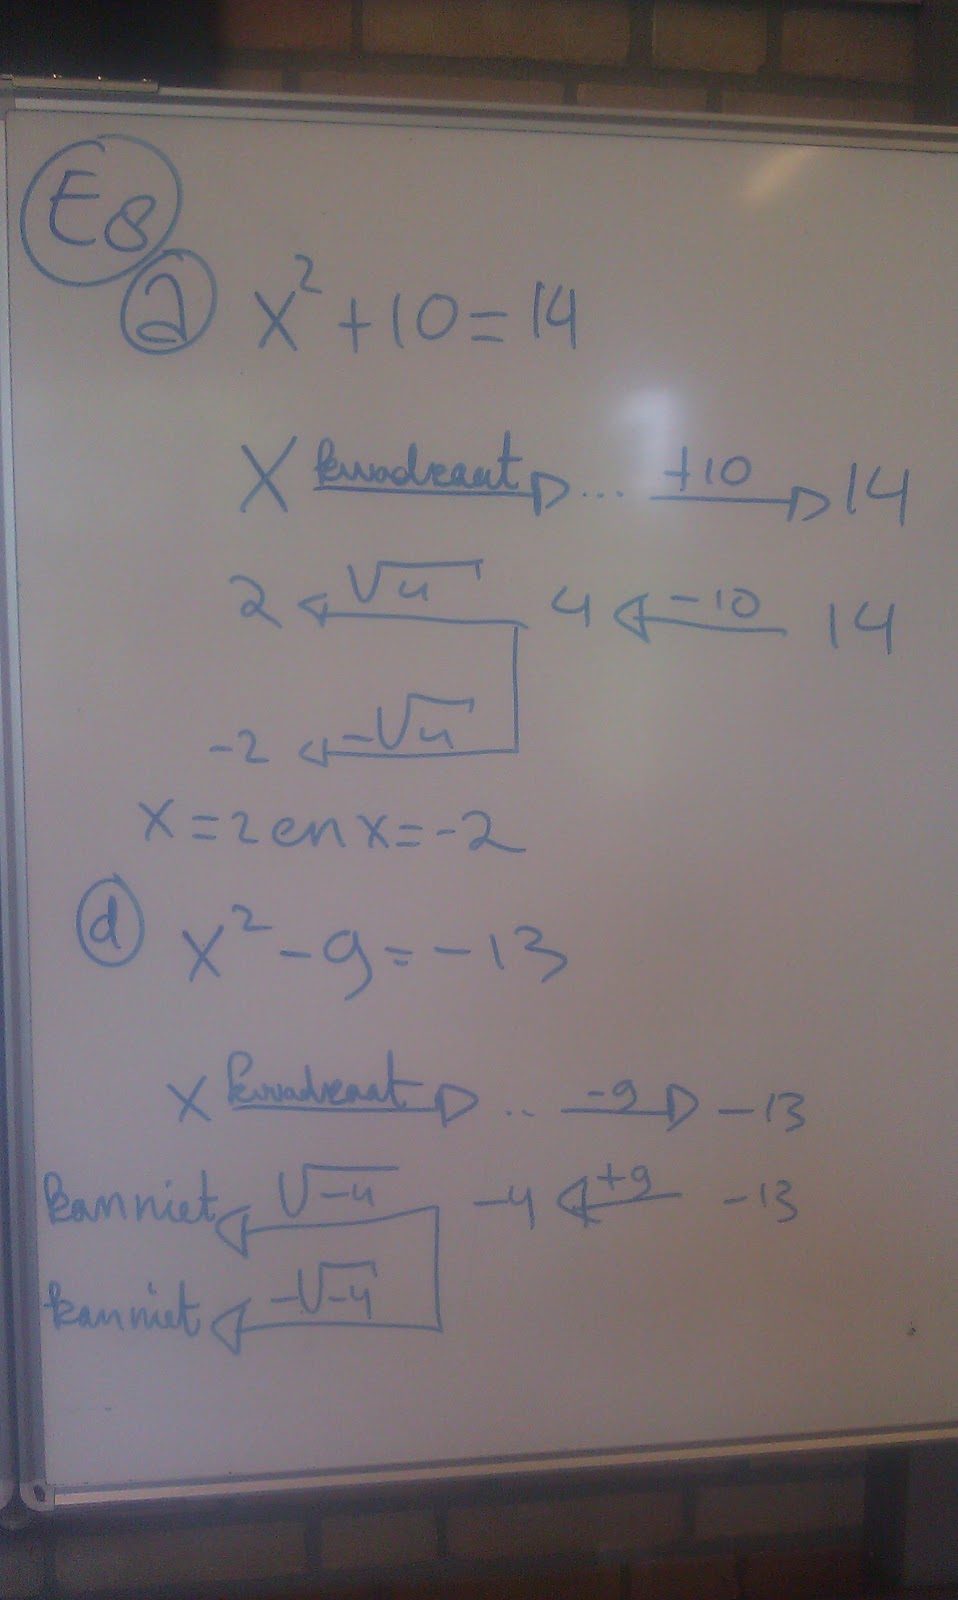 E8
a x² + 10 = 14
x kwadraat ... +10 14
2 √4 4 -10 14
-2 -√4
x = 2 en x = -2
d x² - 9 = -13
x kwadraat .. -9 -13
kan niet √-4 -4 +9 -13
kan niet -√-4